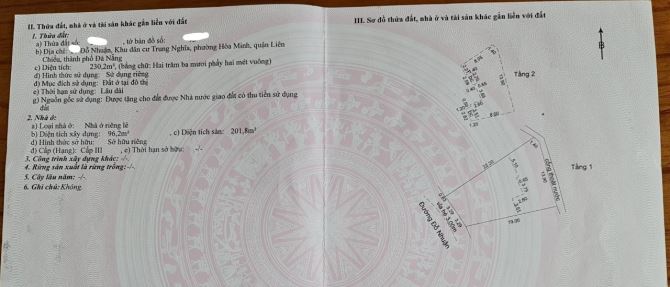 II. Thửa đất, nhà ở và tài sản khác gắn liền với đất
1. Thửa đất:
a) Thửa đất số: , tờ bản đồ số:
b) Địa chỉ: Đỗ Nhuận, Khu dân cư Trung Nghĩa, phường Hòa Minh, quận Liên
Chiểu, thành phố Đà Nẵng
c) Diện tích: 230,2m², (bằng chữ: Hai trăm ba mươi phẩy hai mét vuông)
d) Hình thức sử dụng: Sử dụng riêng
đ) Mục đích sử dụng: Đất ở tại đô thị
e) Thời hạn sử dụng: Lâu dài
g) Nguồn gốc sử dụng: Được tặng cho đất được Nhà nước giao đất có thu tiền sử dụng
đất
2. Nhà ở:
a) Loại nhà ở: Nhà ở riêng lẻ
b) Diện tích xây dựng: 96,2m² , c) Diện tích sàn: 201,8m²
d) Hình thức sở hữu: Sở hữu riêng
đ) Cấp (Hạng): Cấp III , e) Thời hạn sở hữu: -/-
3. Công trình xây dựng khác: -/-
4. Rừng sản xuất là rừng trồng: -/-
5. Cây lâu năm: -/-
6. Ghi chú: Không
III. Sơ đồ thửa đất, nhà ở và tài sản khác gắn liền với đất
B
Tầng 2
8.00
Tầng 1
cống thoát nước
19.00
vỉa hè 3.00m
Đường Đỗ Nhuận